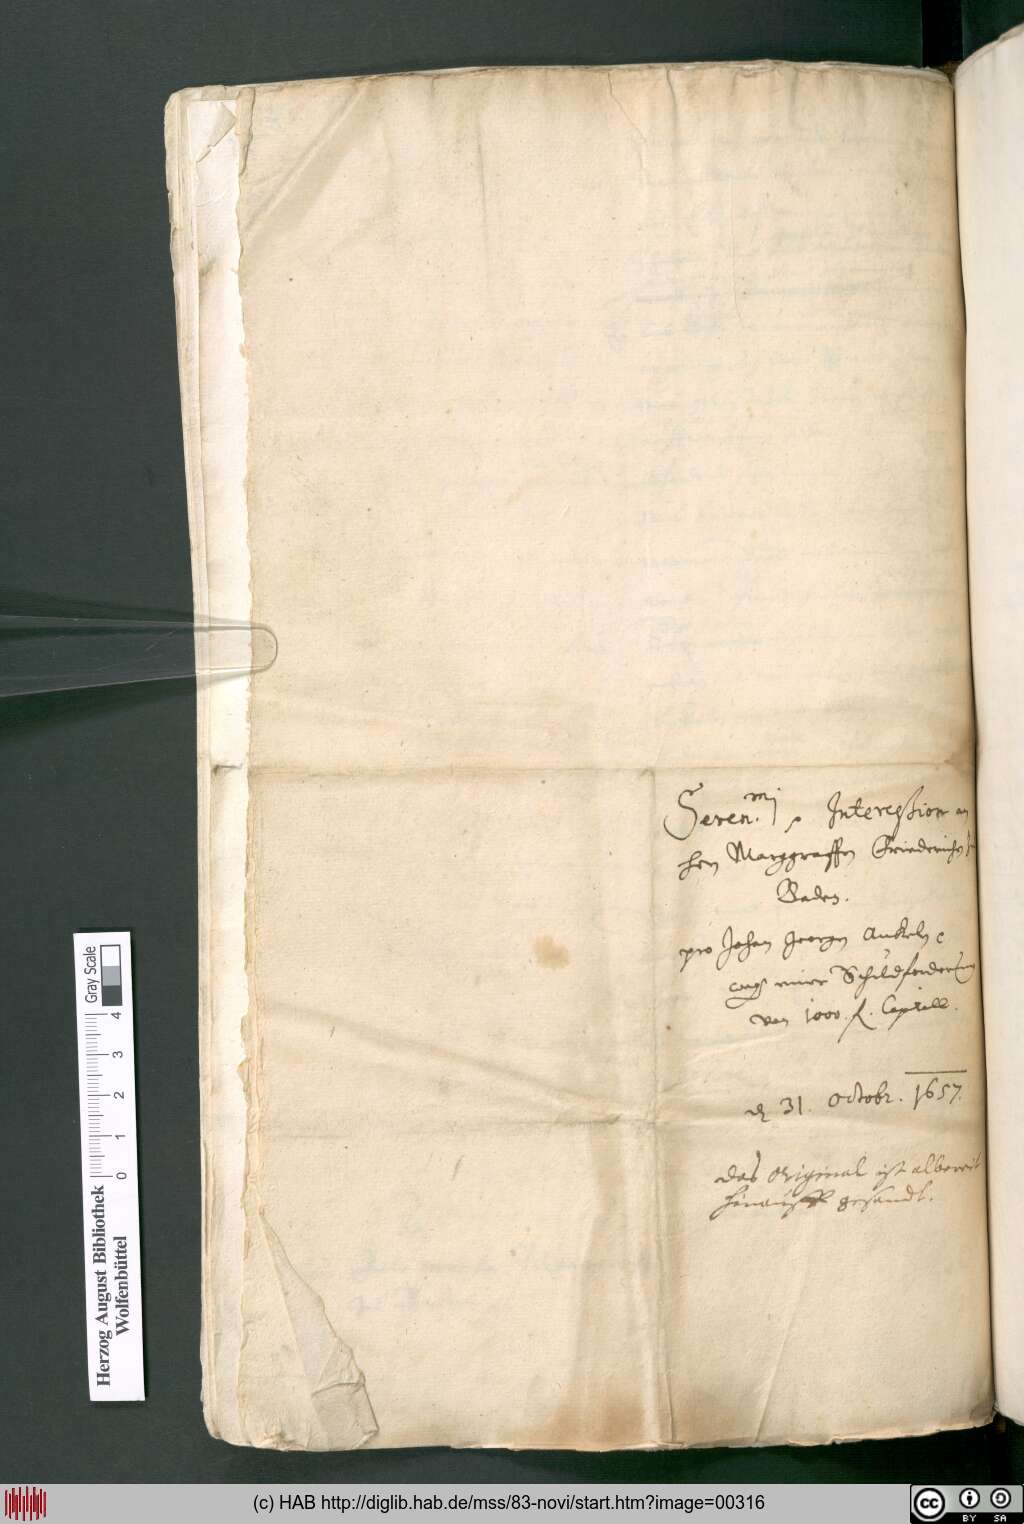 Seren.mj Intercession an
hen Marggraffen Friederichen
Baden.
pro Johan Georgen Anckeln
einer Schuldforderung
von 1000. f. Capitall.
31. Octobr. 1657.
das Original ist albereit
hinauff gesandt.
Gray Scale
4
3
2
1
0
Herzog August Bibliothek
Wolfenbüttel
(c) HAB http://diglib.hab.de/mss/83-novi/start.htm?image=00316
cc BY SA